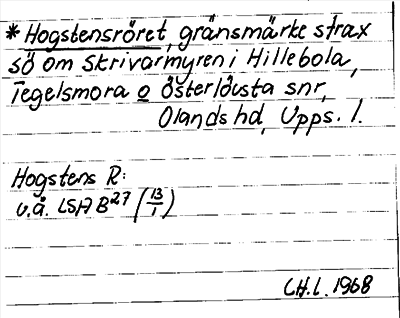 * Hogstensröret, gränsmärke strax
sö om Skrivarmyren i Hillebola,
Tegelsmora o Österlövsta snr,
Olands hd, Upps. l.
Hogstens R:
u.å. LSA B27 (13/1)
CH.L. 1968